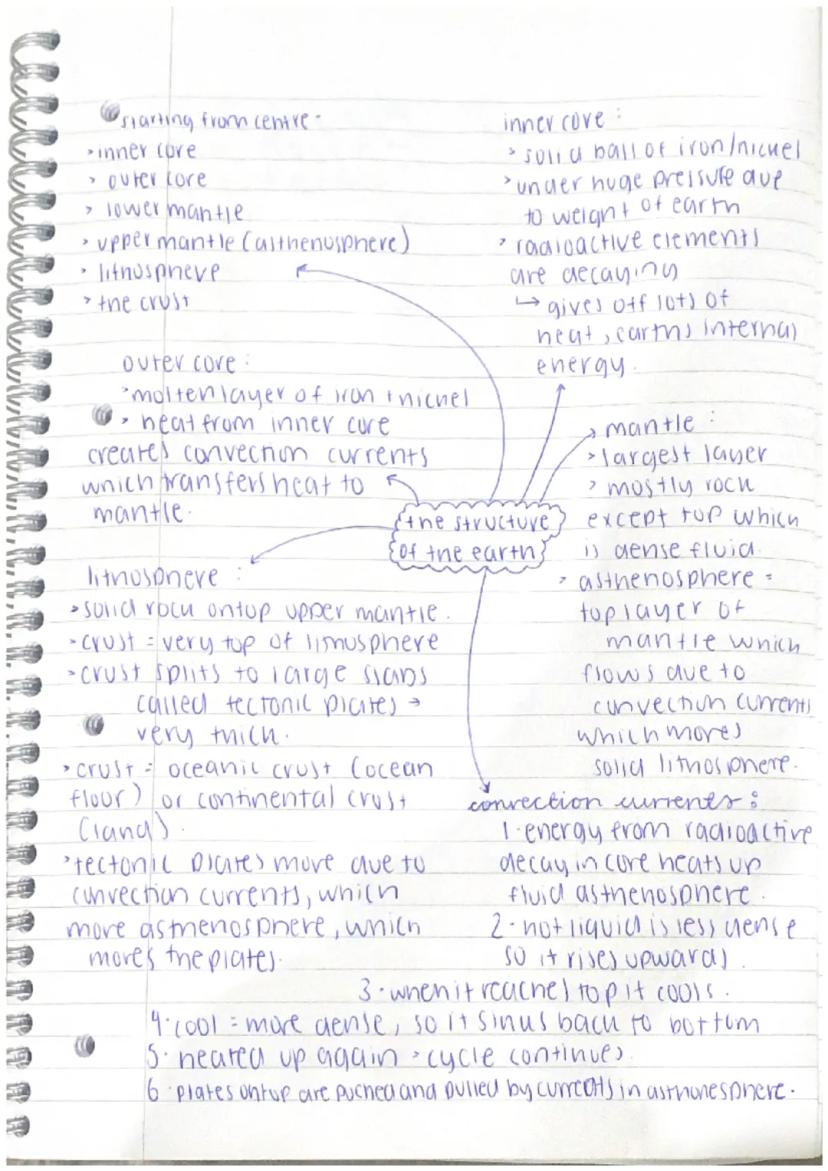 starting from centre -
> inner core
> outer core
> lower mantle
> upper mantle (asthenosphere)
> lithosphere
> the crust
inner core :
> solid ball of iron/nickel
> under huge pressure due
to weight of earth
> radioactive elements
are decaying
↳ gives off lots of
heat, earths internal
energy.
outer core :
> molten layer of iron + nickel
> heat from inner core
creates convection currents
which transfers heat to
mantle.
mantle :
> largest layer
> mostly rock
except top which
is dense fluid.
> asthenosphere =
top layer of
mantle which
flows due to
convection currents
which moves
solid lithosphere.
the structure
of the earth
lithosphere :
> solid rock ontop upper mantle.
> crust = very top of lithosphere
> crust splits to large slabs
called tectonic plates →
very thick.
> crust = oceanic crust (ocean
floor) or continental crust
(land).
> tectonic plates move due to
convection currents, which
move asthenosphere, which
moves the plates.
convection currents :
1. energy from radioactive
decay in core heats up
fluid asthenosphere.
2. hot liquid is less dense
so it rises upwards.
3. when it reaches top it cools.
4. cool = more dense, so it sinks back to bottom
5. heated up again > cycle continues.
6. plates ontop are puched and pulled by currents in asthonesphere.